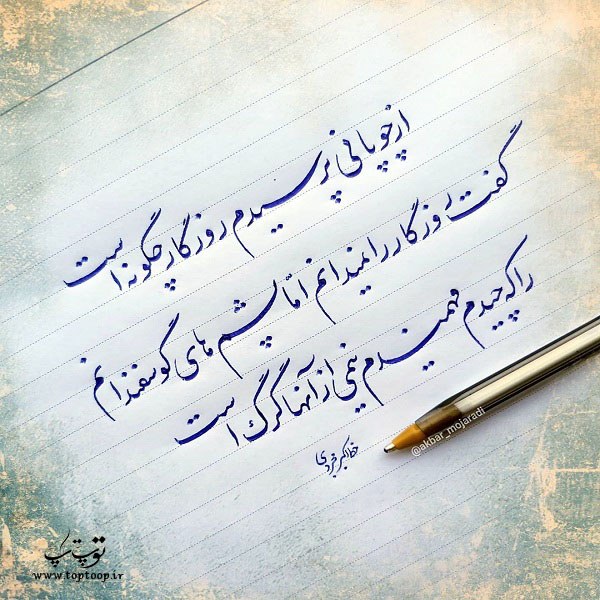 از چوپانی پرسیدم روزگار چگونه است
گفت روزگار را نمیدانم امّا پشم های گوسفندانم
را که چیدم فهمیدم نیمی از آنها گرگ است
خط اکبر مجردی
@akbar_mojaradi
توپ تاپ
www.toptoop.ir